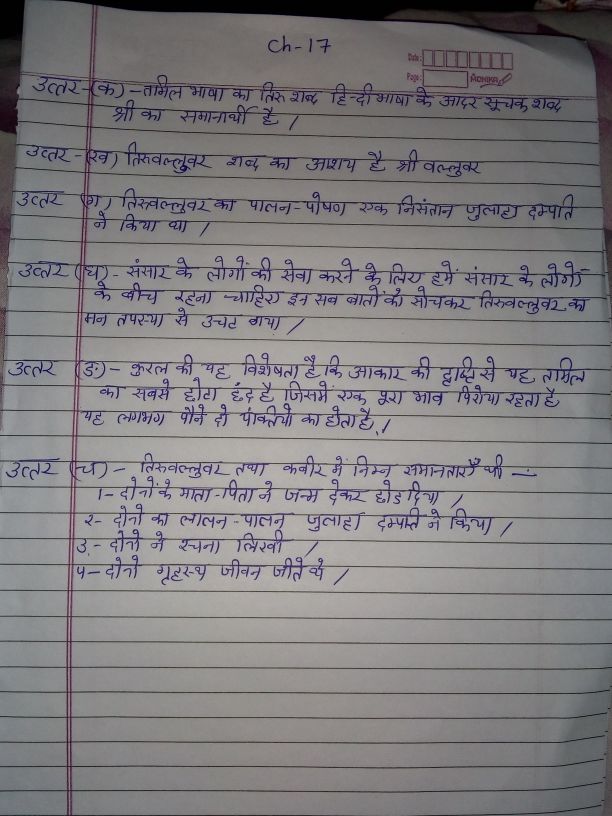 Ch-17
Date:
Page:
MONIKA
उत्तर-(क)-तामिल भाषा का तिरु शब्द हिन्दी भाषा के आदर सूचक शब्द
श्री का समानार्थी है /
उत्तर-(ख) तिरुवल्लुवर शब्द का आशय है श्री वल्लुवर
उत्तर (ग) तिरुवल्लुवर का पालन-पोषण एक निसंतान जुलाहा दम्पति
ने किया था /
उत्तर (घ)- संसार के लोगों की सेवा करने के लिए हमें संसार के लोगों
के बीच रहना चाहिए इन सब बातों को सोचकर तिरुवल्लुवर का
मन तपस्या से उचट गया /
उत्तर (ङ:)- कुरल की यह विशेषता है कि आकार की दृष्टि से यह तामिल
का सबसे छोटा छंद है जिसमें एक पूरा भाव पिरोया रहता है
यह लगभग पौने दो पंक्तियो का होता है /
उत्तर (च)- तिरुवल्लुवर तथा कबीर में निम्न समानताएँ थी -:
1- दोनों के माता-पिता ने जन्म देकर छोड़ दिया /
२- दोनो का लालन-पालन जुलाहा दम्पति ने किया /
३- दोनो ने रचना लिखी /
४- दोनो गृहस्थ जीवन जीते थे /